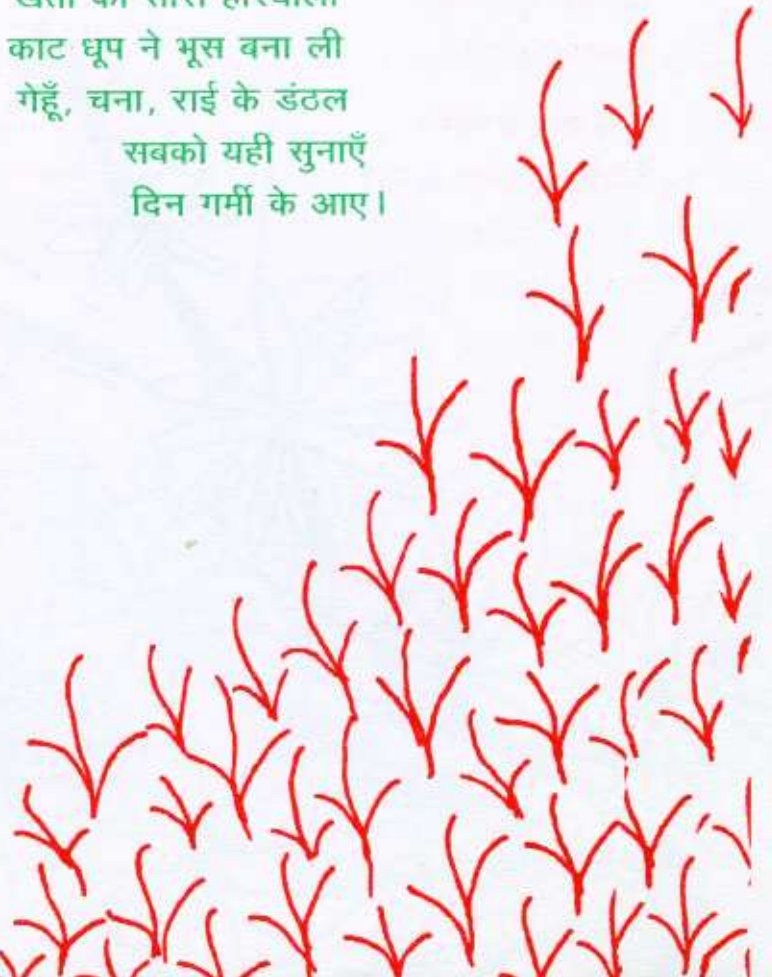 काट धूप ने भूस बना ली
गेहूँ, चना, राई के डंठल
सबको यही सुनाएँ
दिन गर्मी के आए।